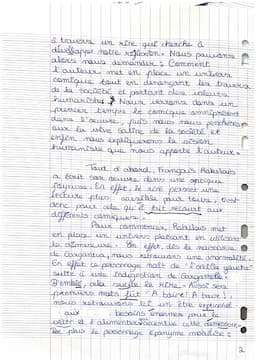 à travers un rire qui cherche à
développer notre réflexion. Nous pouvons
alors nous demander : Comment
l'auteur met en place un univers
comique tout en dénonçant les travers
de la société et portant des valeurs
humanistes. Nous verrons dans un
premier temps le comique omniprésent
dans l'œuvre, puis nous nous pencherons
sur la vive satire de la société et
enfin, nous expliquerons la vision
humaniste que nous apporte l'auteur.
Tout d'abord, François Rabelais
a écrit son œuvre dans une optique
joyeuse. En effet, le rire permet une
lecture plus accessible pour tous, c'est
donc pour cela qu'il fait recours aux
différents comiques :
Pour commencer, Rabelais met
en place un univers plaisant en utilisant
la démesure. En effet, dès la naissance
de Gargantua, nous retrouvons une anormalité.
En effet ce personnage naît de "l'oreille gauche"
suite à une indigestion de Gargamelle.
D'emblée, cela suscite le rire. Aussi ses
premiers mots sont "À boire ! À boire !",
nous retrouvons ici un être
aux besoins énormes pour le
et l'alimentation accentue cette démesure.
De plus le personnage éponyme mobilise :
2